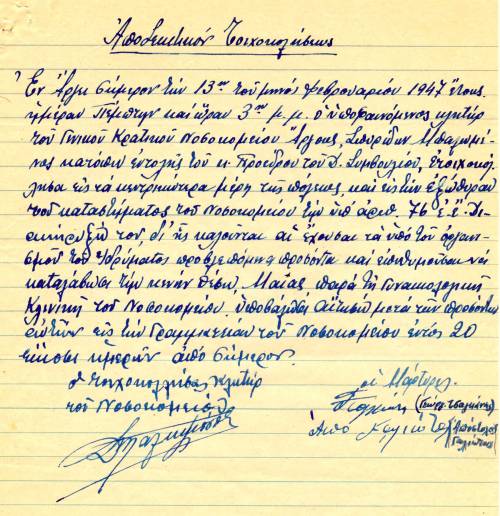 Ἀποδεικτικὸν Τοιχοκολήσεως
Ἐν Ἄργει σήμερον τὴν 13ην τοῦ μηνὸς Φεβρουαρίου 1947 ἔτους
ἡμέραν Πέμπτην καὶ ὥραν 3ην μ.μ. ὁ ὑποφαινόμενος κλητὴρ
τοῦ Γενικοῦ Κρατικοῦ Νοσοκομείου Ἄργους, Σπυρίδων
κατόπιν ἐντολῆς τοῦ κ. Προέδρου τοῦ Δ. Συμβουλίου, ἐτοιχοκόλ
λησα εἰς τὰ κεντρικώτερα μέρη τῆς πόλεως, καὶ εἰς τὴν ἐξώθυραν
τοῦ καταστήματος τοῦ Νοσοκομείου τὴν ὑπ' ἀριθ. 76 ἐ.ἔ. Δι
ακήρυξίν του, δι' ἧς καλοῦνται αἱ ἔχουσαι τὰ ὑπὸ τοῦ ὀργανι
σμοῦ τοῦ Ἱδρύματος προβλεπόμενα προσόντα καὶ ἐπιθυμοῦσαι νὰ
καταλάβωσι τὴν κενὴν θέσιν, Μαίας παρὰ τῇ Γυναικολογικῇ
Κλινικῇ τοῦ Νοσοκομείου, ὑποβάλωσι αἴτησιν μετὰ τῶν προσόντων
αὐτῶν εἰς τὴν Γραμματείαν τοῦ Νοσοκομείου ἐντὸς 20
εἴκοσι ἡμερῶν ἀπὸ σήμερον.
Ὁ τοιχοκολλήσας Κλητὴρ
τοῦ Νοσοκομείου
οἱ Μάρτυρες